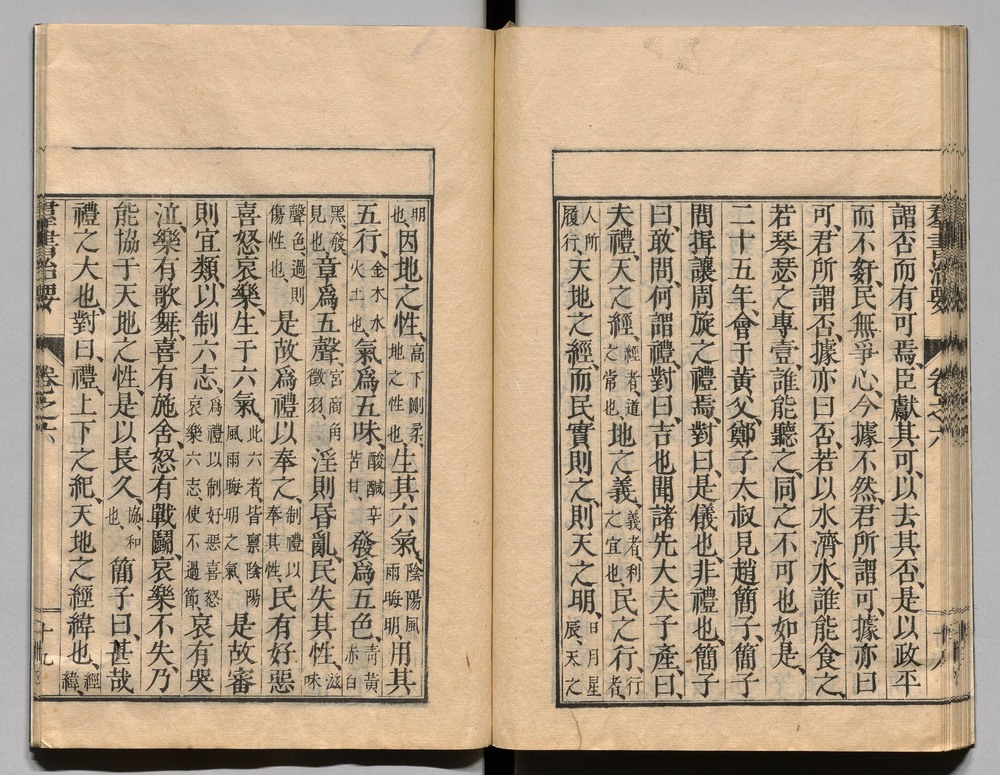 謂否而有可焉、臣獻其可、以去其否、是以政平
而不奸、民無爭心、今據不然、君所謂可、據亦曰
可、君所謂否、據亦曰否、若以水濟水、誰能食之、
若琴瑟之專壹、誰能聽之、同之不可也如是、
二十五年、會于黃父、鄭子太叔見趙簡子、簡子
問揖讓周旋之禮焉、對曰、是儀也、非禮也、簡子
曰、敢問、何謂禮、對曰、吉也聞諸先大夫子產、曰、
夫禮、天之經、經者、道之常也、地之義、義者、利之宜也、民之行、行者、人所履行、
天地之經、而民實則之、則天之明、日月星辰、天之明也、
因地之性、高下剛柔、地之性也、生其六氣、陰陽風雨晦明、用其
五行、金木水火土也、氣爲五味、酸鹹辛苦甘、發爲五色、青黃赤白黑、發見也、
章爲五聲、宮商角徵羽、淫則昏亂、民失其性、滋味聲色、過則傷性也、
是故爲禮以奉之、制禮以奉其性、民有好惡
喜怒哀樂、生于六氣、此六者、皆稟陰陽風雨晦明之氣、是故審
則宜類、以制六志、爲禮以制好惡喜怒哀樂六志、使不過節、哀有哭
泣、樂有歌舞、喜有施舍、怒有戰鬭、哀樂不失、乃
能協于天地之性、是以長久、協和也、簡子曰、甚哉
禮之大也、對曰、禮、上下之紀、天地之經緯也、經緯、
羣書治要
卷之六
十九